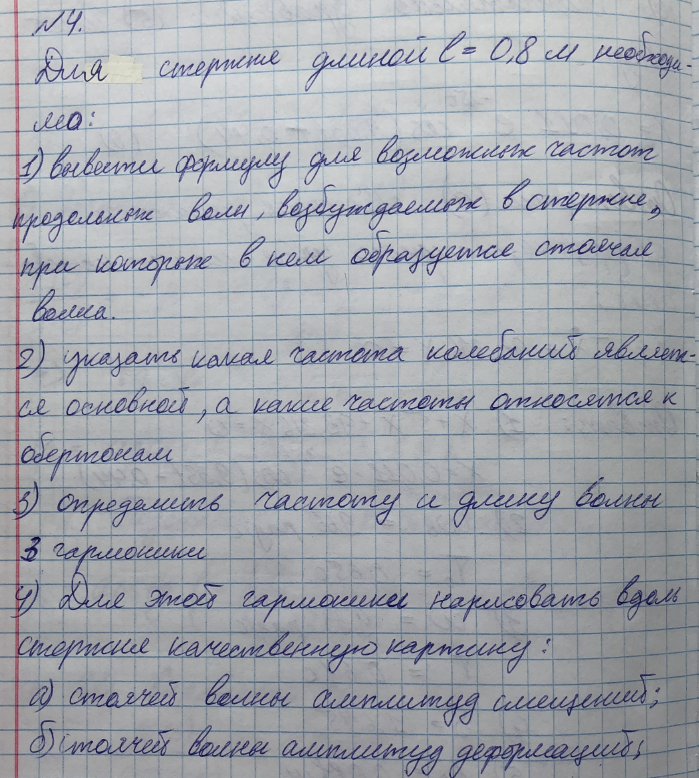 №4.
Для стержня длиной l = 0,8 м необходи-
мо:
1) вывести формулу для возможных частот
продольных волн, возбуждаемых в стержне,
при которых в нем образуется стоячая
волна.
2) указать какая частота колебаний являет-
ся основной, а какие частоты относятся к
обертонам
3) определить частоту и длину волны
3 гармоники
4) Для этой гармоники нарисовать вдоль
стержня качественную картину:
а) стоячей волны амплитуд смещений;
б) стоячей волны амплитуд деформаций;